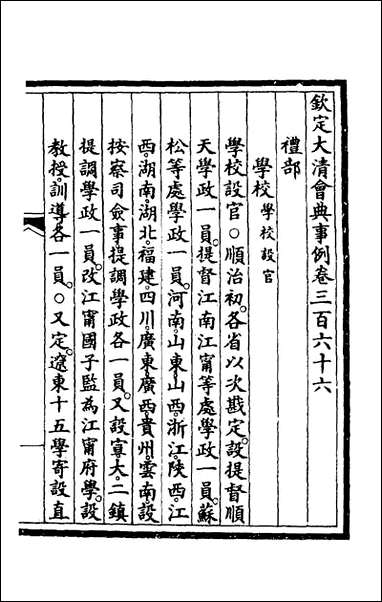 欽定大清會典事例卷三百六十六
禮部
學校學校設官
學校設官○順治初。各省以次戡定。設提督順
天學政一員。提督江南江甯等處學政一員。蘇
松等處學政一員。河南。山東。山西。浙江。陝西。江
西。湖南。湖北。福建。四川。廣東。廣西。貴州。雲南。設
按察司僉事提調學政各一員。又設宣大。二鎮
提調學政一員。改江甯國子監為江甯府學。設
教授。訓導。各一員。○又定。遼東十五學寄設直